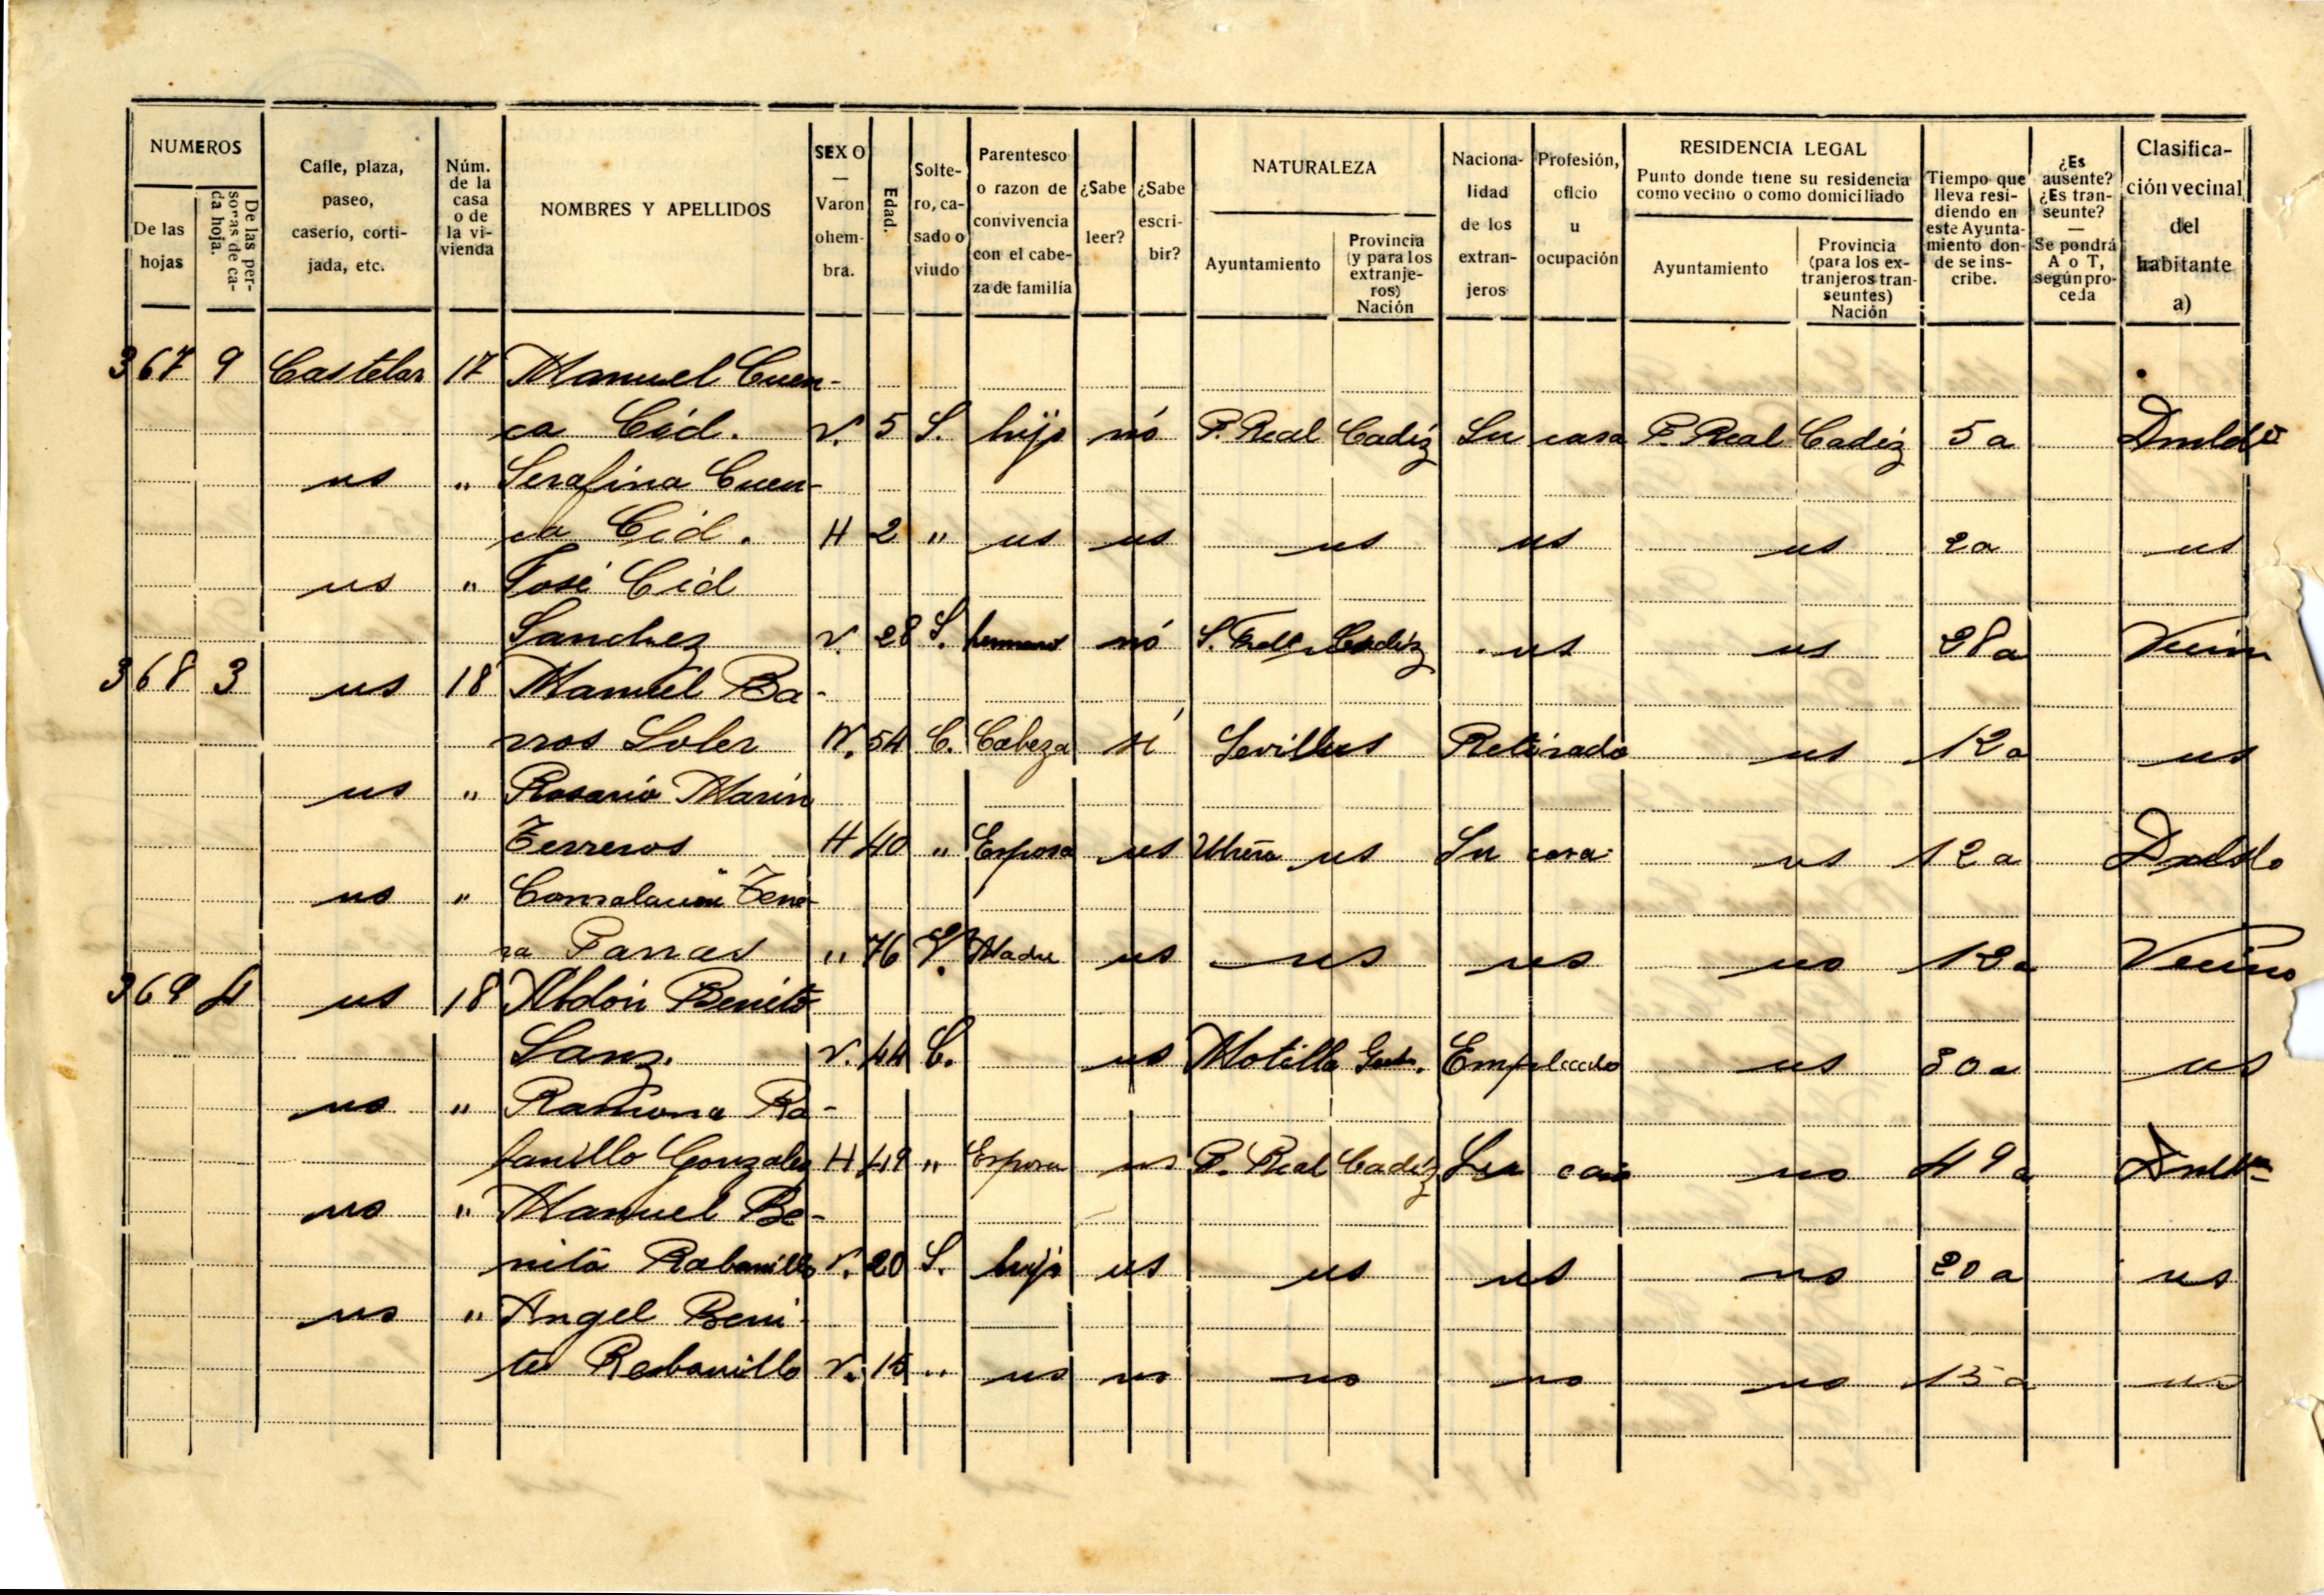 NUMEROS
De las hojas
De las personas de cada hoja.
Calle, plaza, paseo, caserío, cortijada, etc.
Núm. de la casa o de la vivienda
NOMBRES Y APELLIDOS
SEXO — Varon ohembra.
Edad.
Soltero, casado o viudo
Parentesco o razon de convivencia con el cabeza de familia
¿Sabe leer?
¿Sabe escribir?
NATURALEZA
Ayuntamiento
Provincia (y para los extranjeros) Nación
Nacionalidad de los extranjeros
Profesión, oficio u ocupación
RESIDENCIA LEGAL
Punto donde tiene su residencia como vecino o como domiciliado
Ayuntamiento
Provincia (para los extranjeros transeuntes) Nación
Tiempo que lleva residiendo en este Ayuntamiento donde se inscribe.
¿Es ausente? ¿Es transeunte? — Se pondrá A o T, según proceda
Clasificación vecinal del habitante a)
367 9 Castelar 17 Manuel Cuen-
ca Cid. V. 5 S. hijo nó P. Real Cadiz Su casa P. Real Cadiz 5 a
us " Serafina Cuen-
ca Cid. H 2 " us us us us us 2 a us
us " José Cid
Sanchez V. 28 S. hermano nó Cadiz us us 28 a Vecino
368 3 us 18 Manuel Ba-
rros Soler V. 54 C. Cabeza si Sevilla us Retirado us 12 a us
us " Rosario Marin
Terreros H 40 " Esposa us us Su casa us 12 a
us " Consolacion
" 76 V. Madre us us us us 12 a Vecino
369 4 us 18 Abdón Benito
Sanz. V. 44 C. us Motilla Empleado us 30 a us
us " Ramona Ra-
Gonzalez H 49 " Esposa us P. Real Cadiz Su casa us 49 a
us " Manuel Be-
nito Rabanillo V. 20 S. hijo us us us us 20 a us
us " Angel Beni-
to Rabanillo V. 15 " us us us us us 15 a us